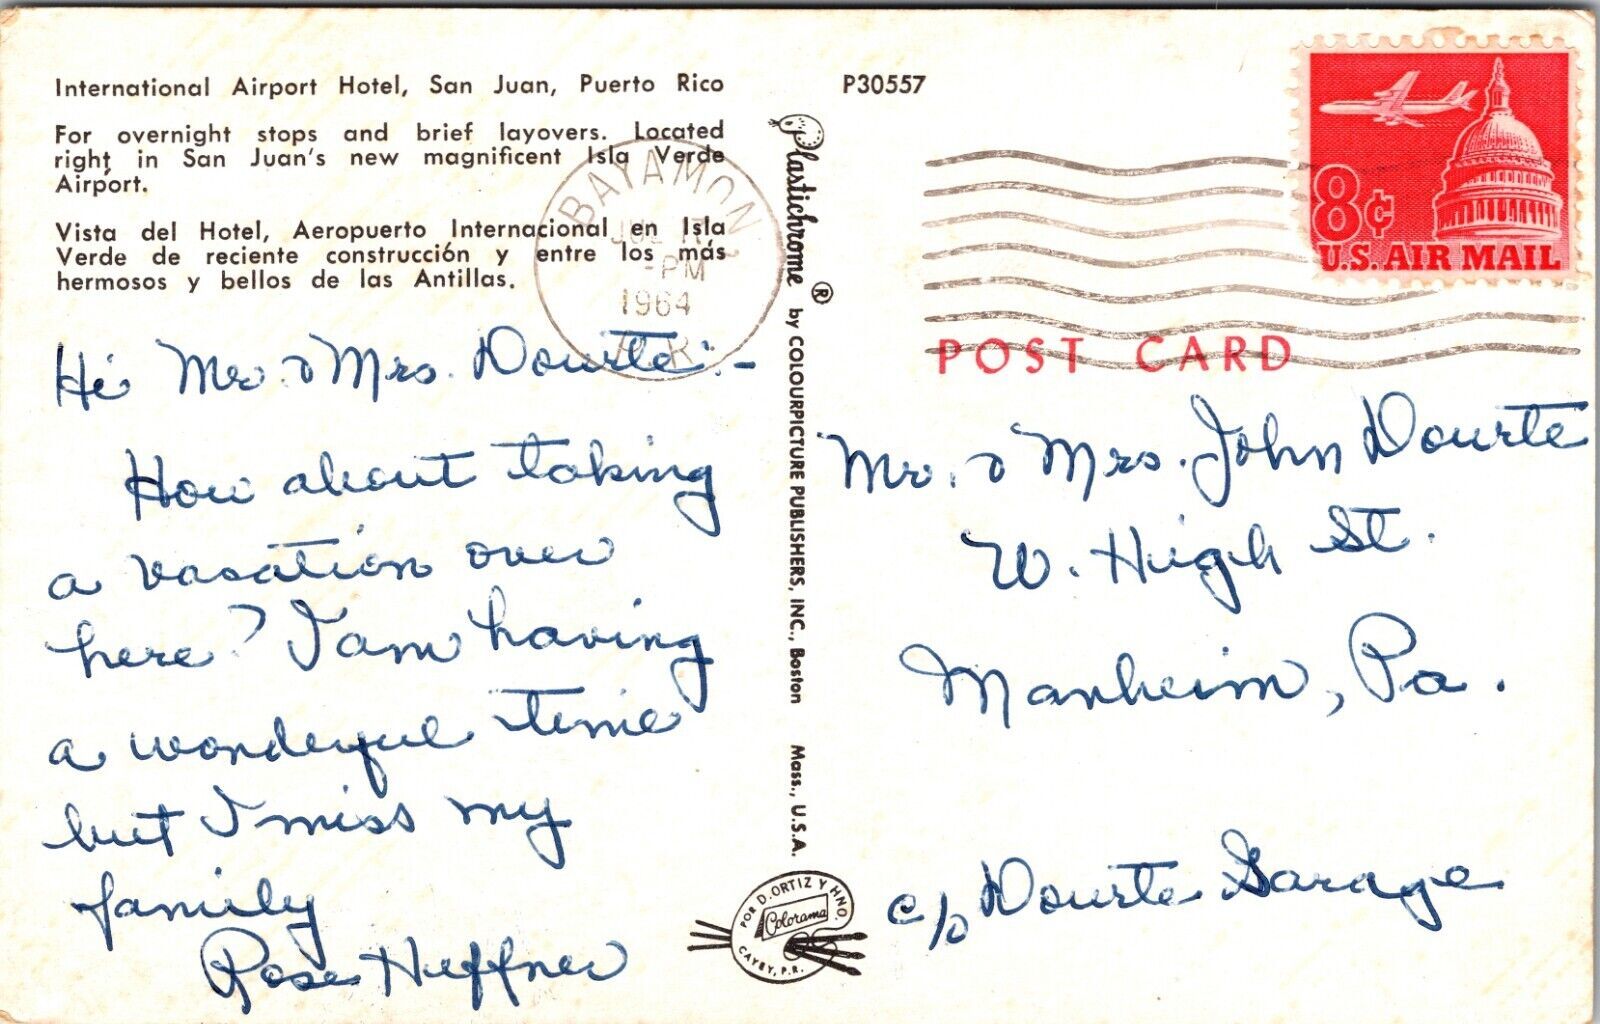 International Airport Hotel, San Juan, Puerto Rico
For overnight stops and brief layovers. Located
right in San Juan's new magnificent Isla Verde
Airport.
Vista del Hotel, Aeropuerto Internacional en Isla
Verde de reciente construcción y entre los más
hermosos y bellos de las Antillas.
Hi Mr. & Mrs. Dourte:-
How about taking
a vacation over
here? I am having
a wonderful time
but I miss my
family
Rose Heffner
BAYAMON
JUL
-PM
1964
P.R.
P30557
Plastichrome ® by COLOURPICTURE PUBLISHERS, INC., Boston Mass., U.S.A.
POR D. ORTIZ Y HNO.
Colorama
CAYEY, P.R.
8¢
U.S. AIR MAIL
POST CARD
Mr. & Mrs. John Dourte
W. High St.
Manheim, Pa.
c/o Dourte Garage